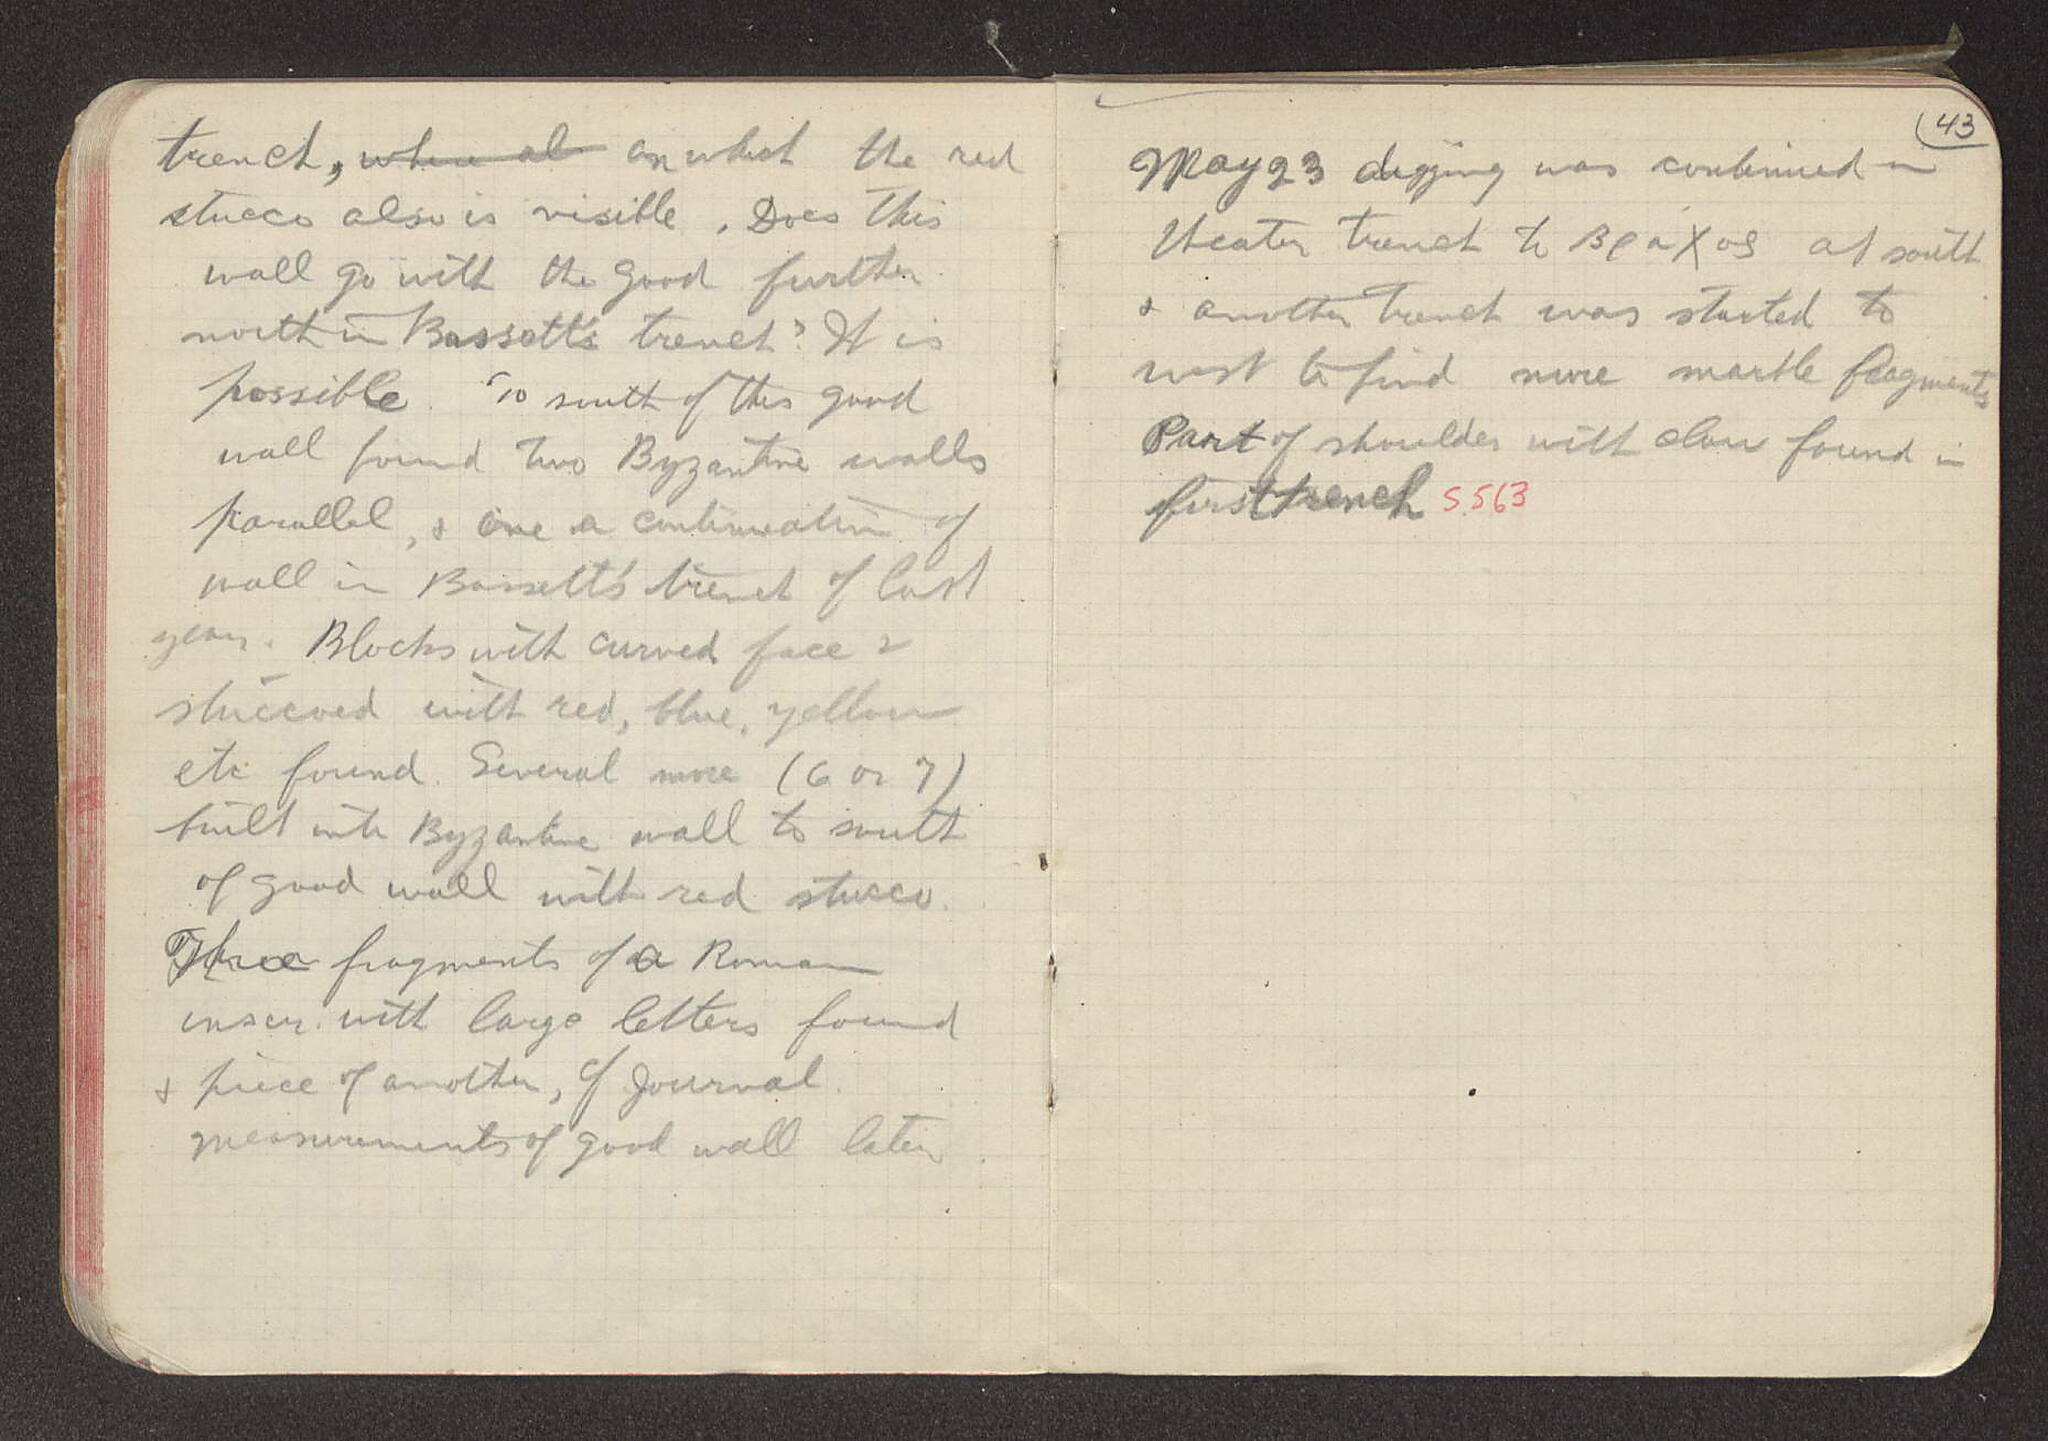 trench, where al on which the red
stucco also is visible. Does this
wall go with the good further
north in Bassett's trench? It is
possible. To south of this good
wall found two Byzantine walls
parallel, & one a continuation of
wall in Bassett's trench of last
year. Blocks with curved face &
stuccoed with red, blue, yellow
etc found. Several more (6 or 7)
built into Byzantine wall to south
of good wall with red stucco.
Three fragments of a Roman
inscr. with large letters found
& piece of another, cf Journal.
measurements of good wall later.
43
May 23 digging was continued in
theater trench to Βράχος at south
& another trench was started to
west to find more marble fragments
Part of shoulder with claw found in
first trench S 563